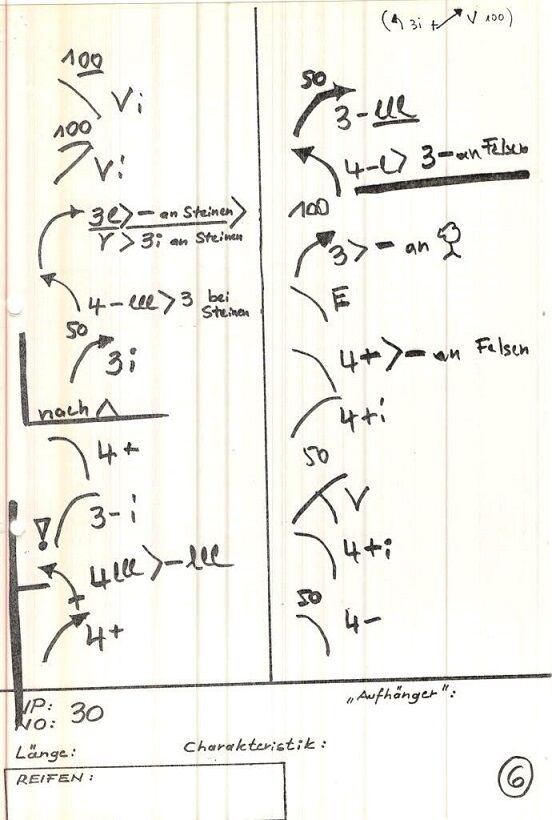 (3i + V 100)
100
Vi
100
Vi
3l > - an Steinen >
V > 3i an Steinen
4 - lll > 3 bei
Steinen
50
3i
nach
4+
3-i
!
4lll > - lll
+
4+
50
3 - lll
4-l > 3 - an Felsen
100
3 > - an
E
4+ > - an Felsen
4+i
50
V
4+i
50
4-
NO: 30
"Aufhänger":
Länge:
Charakteristik:
REIFEN:
6